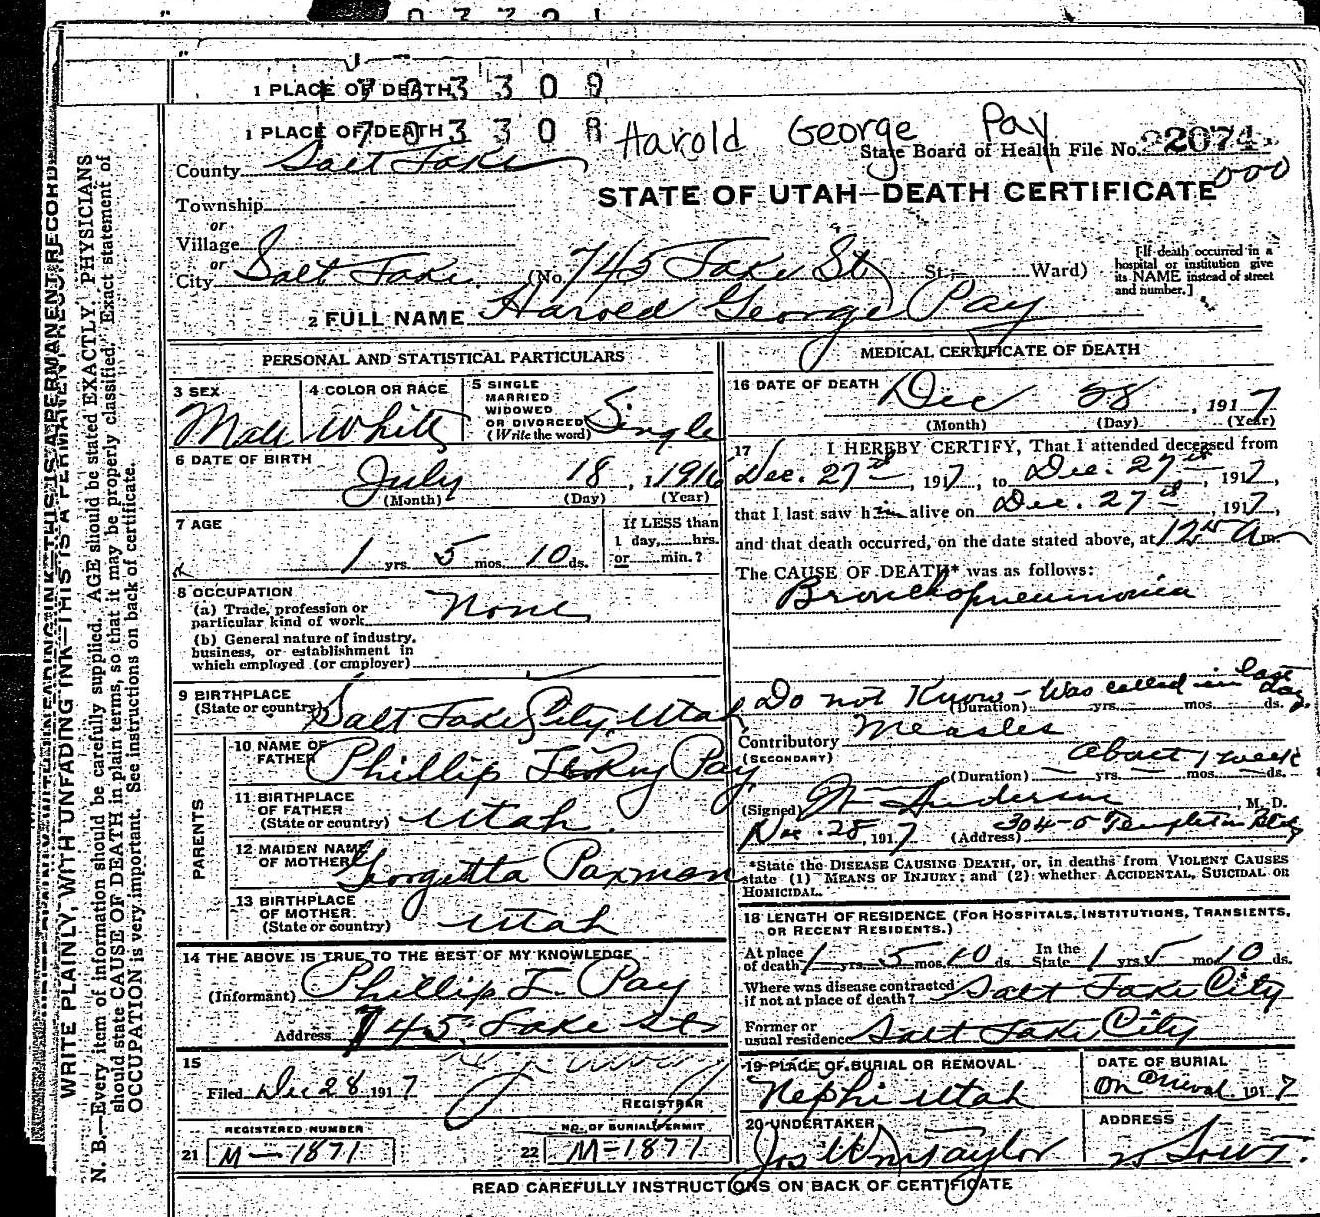 1 PLACE OF DEATH
1703309
1 PLACE OF DEATH
170330
Harold George Pay
State Board of Health File No. 22074
000
County Salt Lake
STATE OF UTAH—DEATH CERTIFICATE
Township
or
Village
or
City Salt Lake (No. 745 Lake St. St.; Ward)
[If death occurred in a hospital or institution give its NAME instead of street and number.]
2 FULL NAME Harold George Pay
PERSONAL AND STATISTICAL PARTICULARS
3 SEX Male
4 COLOR OR RACE White
5 SINGLE MARRIED WIDOWED OR DIVORCED (Write the word) Single
6 DATE OF BIRTH July 18, 1916
(Month) (Day) (Year)
7 AGE
1 yrs. 5 mos. 10 ds.
If LESS than 1 day, hrs. or min.?
8 OCCUPATION
(a) Trade, profession or particular kind of work None
(b) General nature of industry, business, or establishment in which employed (or employer)
9 BIRTHPLACE
(State or country) Salt Lake City, Utah
PARENTS
10 NAME OF FATHER Phillip LeRoy Pay
11 BIRTHPLACE OF FATHER (State or country) Utah.
12 MAIDEN NAME OF MOTHER Georgetta Paxman
13 BIRTHPLACE OF MOTHER (State or country) Utah
14 THE ABOVE IS TRUE TO THE BEST OF MY KNOWLEDGE
(Informant) Phillip L. Pay
Address 745 Lake St.
15
Filed Dec 28 1917
REGISTRAR
REGISTERED NUMBER
21 M—1871
NO. OF BURIAL PERMIT
22 M—1871
MEDICAL CERTIFICATE OF DEATH
16 DATE OF DEATH Dec 28, 1917
(Month) (Day) (Year)
17 I HEREBY CERTIFY, That I attended deceased from
Dec. 27th, 1917, to Dec. 27th, 1917,
that I last saw him alive on Dec. 27th, 1917,
and that death occurred, on the date stated above, at 12 A m.
The CAUSE OF DEATH* was as follows:
Bronchopneumonia
Do not Know - Was called in last day.
(Duration) yrs. mos. ds.
Contributory Measles
(SECONDARY)
about 1 week
(Duration) yrs. mos. ds.
(Signed) Anderson, M. D.
Dec. 28, 1917 (Address) 304-5 Templeton Bldg
*State the DISEASE CAUSING DEATH, or, in deaths from VIOLENT CAUSES state (1) MEANS OF INJURY; and (2) whether ACCIDENTAL, SUICIDAL OR HOMICIDAL.
18 LENGTH OF RESIDENCE (FOR HOSPITALS, INSTITUTIONS, TRANSIENTS, OR RECENT RESIDENTS.)
At place of death 1 yrs. 5 mos. 10 ds. In the State 1 yrs. 5 mos. 10 ds.
Where was disease contracted if not at place of death? Salt Lake City
Former or usual residence Salt Lake City
19 PLACE OF BURIAL OR REMOVAL
Nephi Utah
DATE OF BURIAL
On arrival 1917
20 UNDERTAKER
Jos Wm Taylor
ADDRESS
READ CAREFULLY INSTRUCTIONS ON BACK OF CERTIFICATE
WRITE PLAINLY, WITH UNFADING INK—THIS IS A PERMANENT RECORD
N. B.—Every item of information should be carefully supplied. AGE should be stated EXACTLY. PHYSICIANS
should state CAUSE OF DEATH in plain terms, so that it may be properly classified. Exact statement of
OCCUPATION is very important. See instructions on back of certificate.